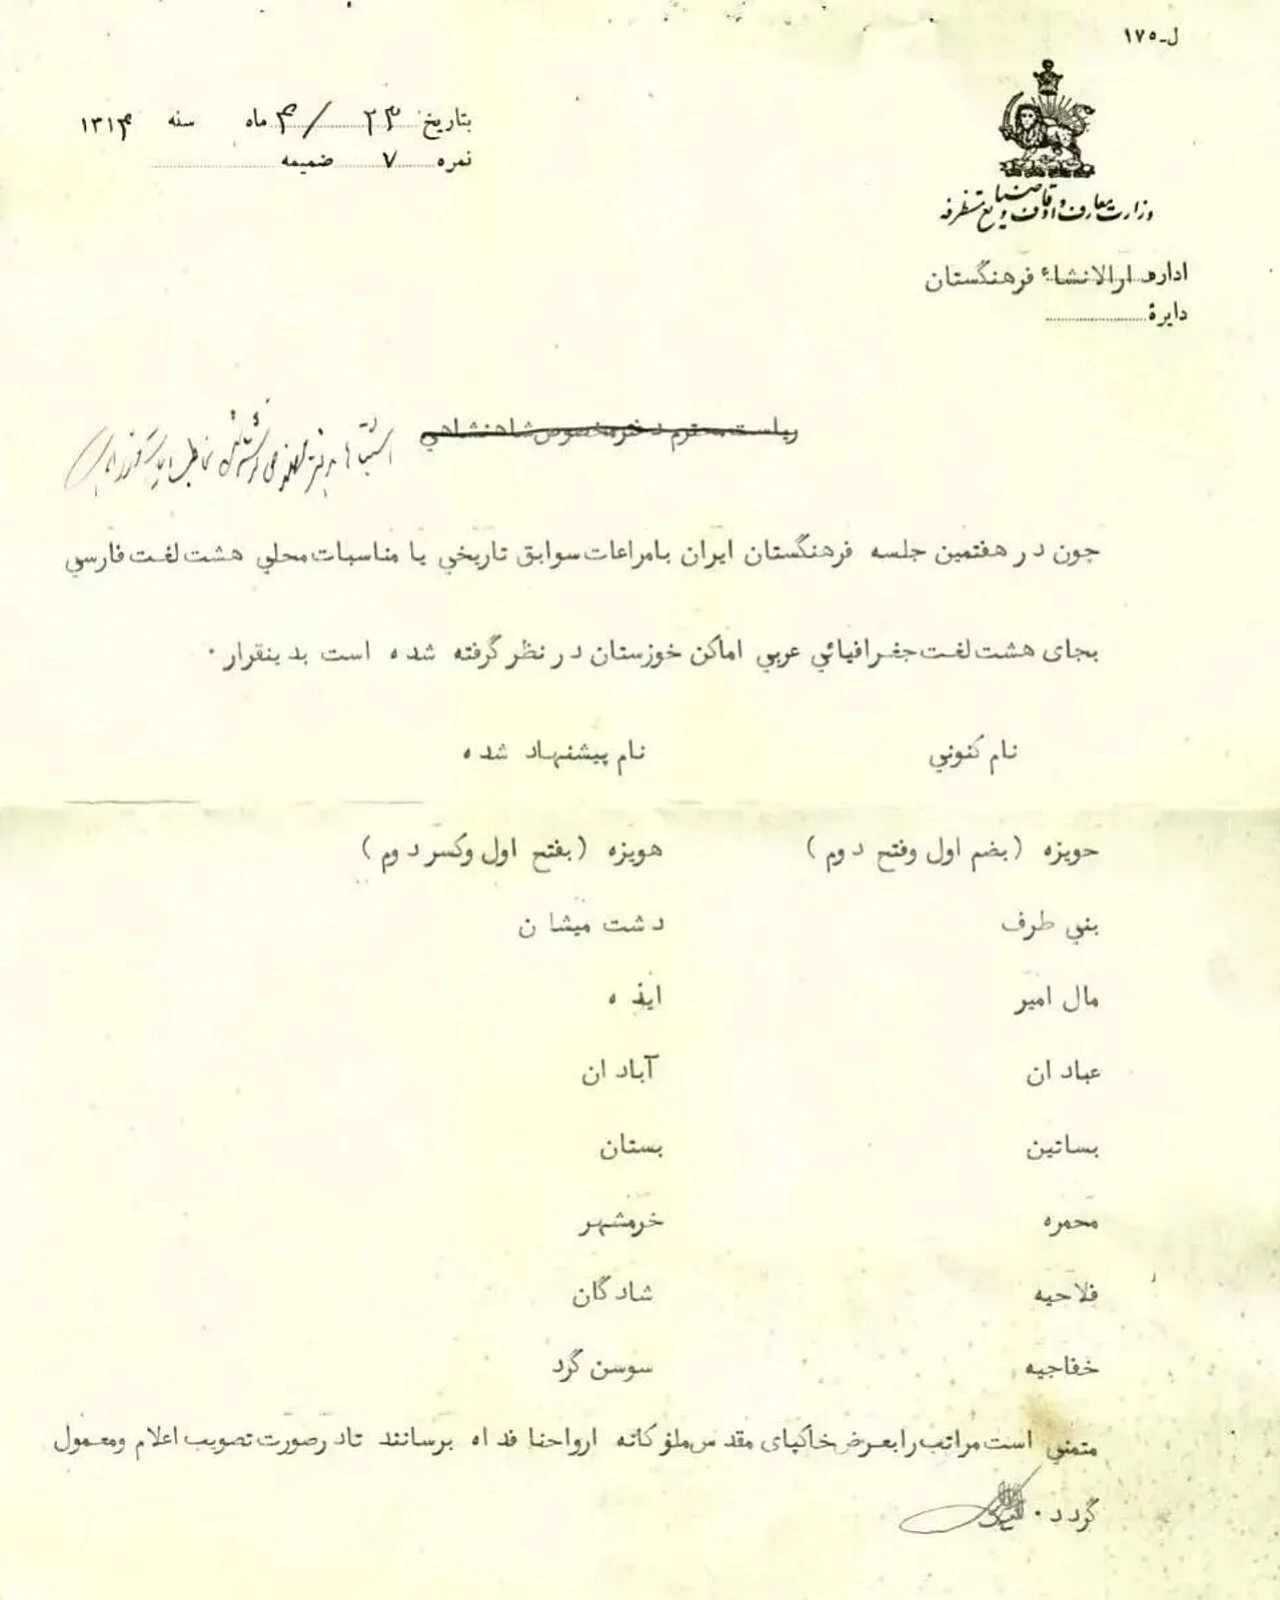 ل-۱۷۵
وزارت معارف و اوقاف و صنایع مستظرفه
اداره دارالانشاء فرهنگستان
دایرهٔ
بتاریخ ۲۳ / ۴ ماه سنه ۱۳۱۴
نمره ۷ ضمیمه
ریاست محترم دفتر مخصوص شاهنشاهي
چون در هفتمین جلسه فرهنگستان ایران بامراعات سوابق تاریخي یا مناسبات محلي هشت لغت فارسي
بجای هشت لغت جغرافیائي عربي اماکن خوزستان در نظر گرفته شده است بدینقرار ۰
نام کنوني نام پیشنهاد شده
حویزه (بضم اول وفتح دوم) هویزه (بفتح اول وکسر دوم)
بني طرف دشت میشان
مال امیر ایذه
عبادان آبادان
بساتین بستان
محمره خرمشهر
فلاحیه شادگان
خفاجیه سوسن گرد
متمني است مراتب رابعرض خاکپای مقدس ملوکانه ارواحنا فداه برسانند تادرصورت تصویب اعلام ومعمول
گردد ۰